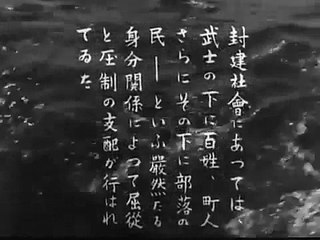 封建社會にあつては
武士の下に百姓、町人
さらにその下に部落の
民──といふ嚴然たる
身分関係によつて屈從
と圧制の支配が行はれ
てゐた